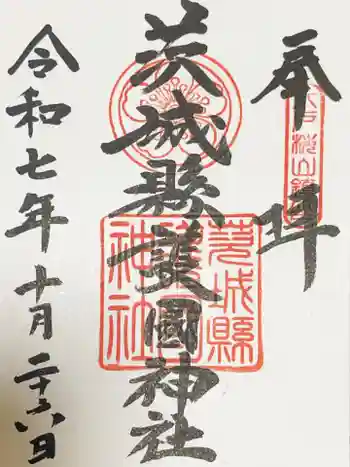 奉拝
水戸 桜山鎮座
茨城縣護國神社
茨城縣護國神社
令和七年十月二十六日